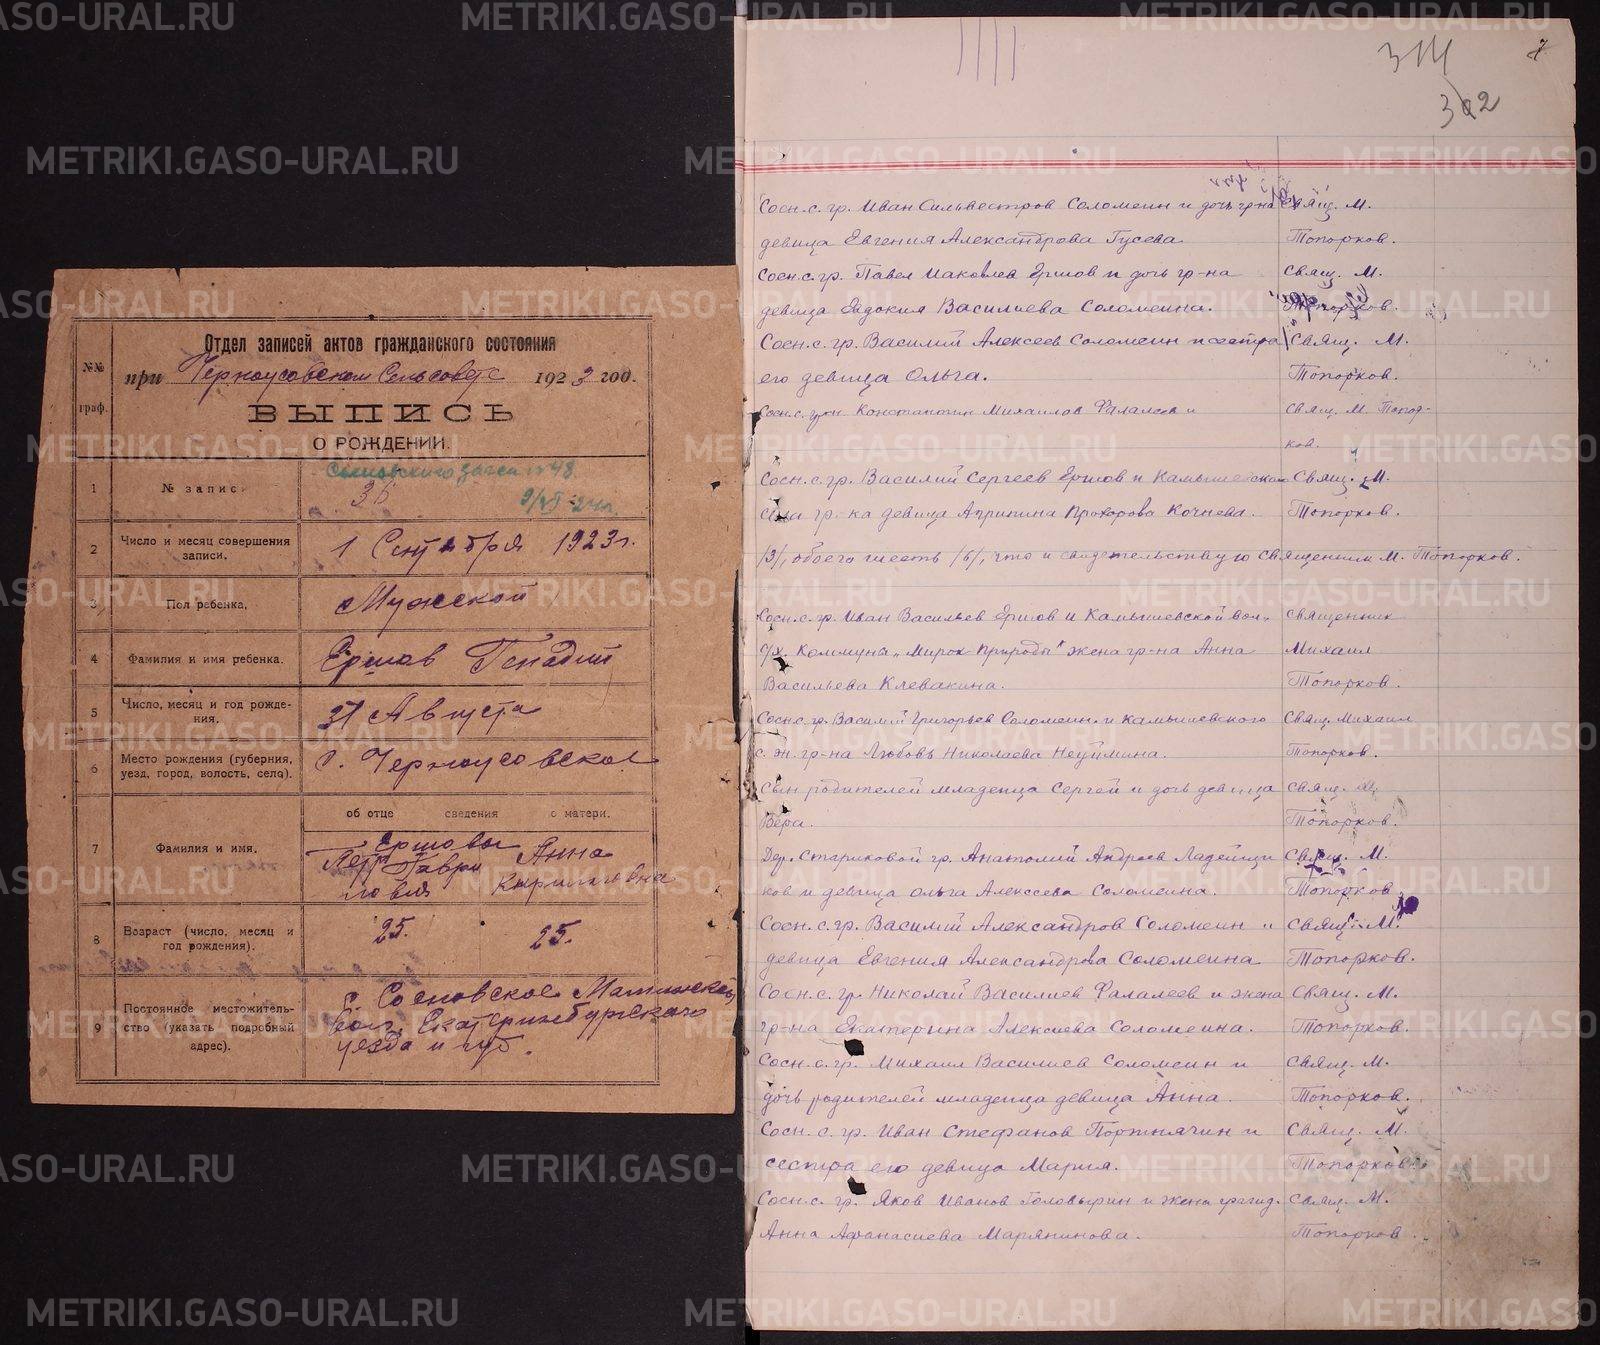 Отдел записей актов гражданского состояния
при Черноусовском Сельсовете 1923 год.
№№ граф.
ВЫПИСЬ
О РОЖДЕНИИ.
1 № записи 36
9/VI-24г.
2 Число и месяц совершения записи. 1 Сентября 1923г.
3 Пол ребенка. Мужской
4 Фамилия и имя ребенка. Ершов Генадий
5 Число, месяц и год рождения. 31 Августа
6 Место рождения (губерния, уезд, город, волость, село). с. Черноусовское
об отце сведения о матери.
7 Фамилия и имя. Ершовы
Петр Гаврилович Анна Кирилловна
8 Возраст (число, месяц и год рождения). 25. 25.
9 Постоянное местожительство (указать подробный адрес). с. Сосновское
вол. Екатеринбургского
уезда и губ.
314
302
7
Сосн. с. гр. Иван Сильвестров Соломеин и дочь гр-на Свящ. М.
девица Евгения Александрова Гусева Топорков.
Сосн. с. гр. Павел Иаковлев Ершов и дочь гр-на Свящ. М.
девица Евдокия Василиева Соломеина. Топорков.
Сосн. с. гр. Василий Алексеев Соломеин и сестра Свящ. М.
его девица Ольга. Топорков.
Сосн. с. гр-н Константин Михаилов Фалалеев и Свящ. М. Топор-
ков.
Сосн. с. гр. Василий Сергеев Ершов и Камышевская Свящ. М.
села гр-ка девица Агрипина Прохорова Кочнева. Топорков.
/3/, обоего шесть /6/, что и свидетельствую Священник М. Топорков.
Сосн. с. гр. Иван Васильев Ершов и Камышевской вол. Священник
с/х. Коммуны "Мирок Природы" жена гр-на Анна Михаил
Васильева Клевакина. Топорков.
Сосн. с. гр. Василий Григорьев Соломеин и Камышевского Свящ. Михаил
с. ж. гр-на Любовь Николаева Неуймина. Топорков.
Сын родителей младенца Сергей и дочь девица Свящ. М.
Вера. Топорков.
Дер. Стариковой гр. Анатолий Андреев Ладейщи Свящ. М.
ков и девица Ольга Алексеева Соломеина. Топорков
Сосн. с. гр. Василий Александров Соломеин и Свящ. М.
девица Евгения Александрова Соломеина Топорков.
Сосн. с. гр. Николай Василиев Фалалеев и жена Свящ. М.
гр-на Екатерина Алексиева Соломеина. Топорков.
Сосн. с. гр. Михаил Василиев Соломеин и Свящ. М.
дочь родителей младенца девица Анна. Топорков.
Сосн. с. гр. Иван Стефанов Портнячин и Свящ. М.
сестра его девица Мария. Топорков.
Сосн. с. гр. Яков Иванов Головырин и жена гражд. Свящ. М.
Анна Афанасиева Марянинова. Топорков
METRIKI.GASO-URAL.RU